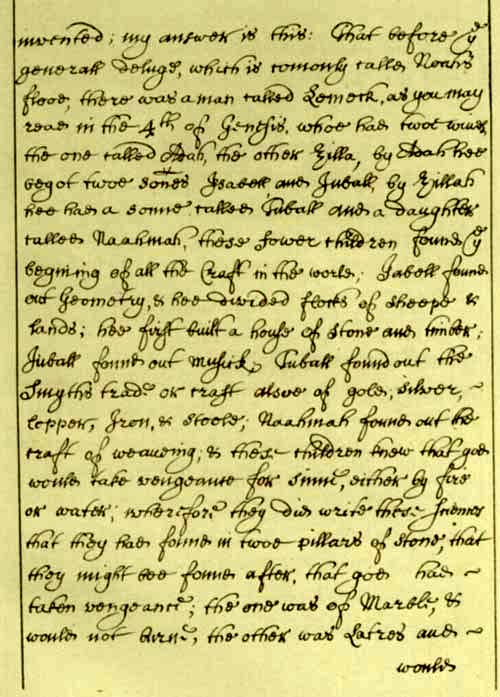 invented; my answer is this: That before yͤ
generall deluge, which is comonly called Noah's
flood, there was a man called Lemech, as you may
read in the 4th of Genesis, whoe had twoe wives,
the one called Adah, the other Zilla, by Adah hee
begot twoe sones Jabell, and Juball, by Zillah
hee had a sonne called Tuball and a daughter
called Naahmah, these fower children found yͤ
begining of all the Craft in the world; Jabell found
out Geometry, & hee divided flocks of sheepe &
lands; hee first built a house of stone and timber;
Juball found out Musick; Tuball found out the
Smyths trade or craft alsoe of gold, silver, ~
Copper, Iron, & Steele; Naahmah found out the
craft of weaveing, & these children knew that god
would take vengeance for sinne, either by fire
or water; wherefore they did write these Sciences
that they had found in twoe pillars of stone, that
they might bee found after, that god had ~
taken vengeance; the one was of Marble, &
would not burne, the other was Latres and ~
would